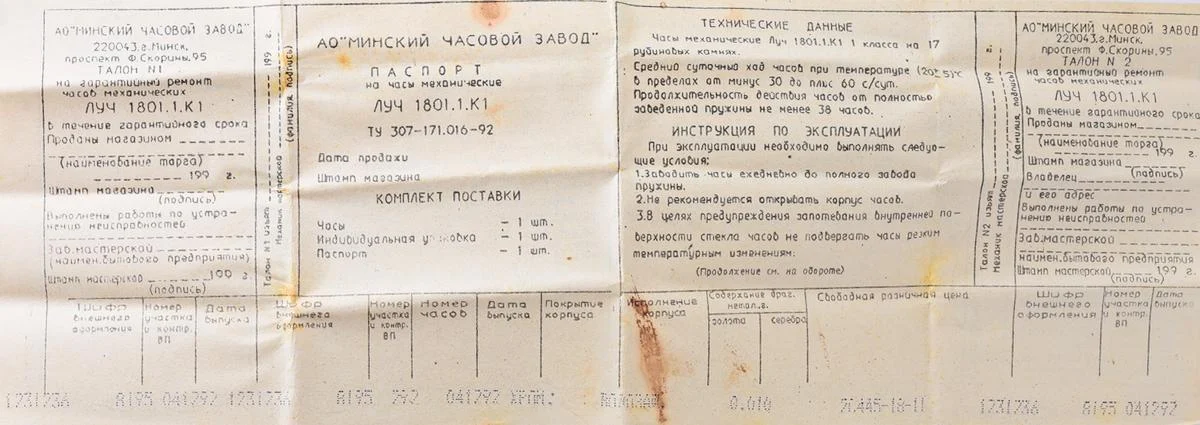 АО"МИНСКИЙ ЧАСОВОЙ ЗАВОД"
220043,г.Минск,
проспект Ф.Скорины,95
ТАЛОН N1
на гарантийный ремонт
часов механических
ЛУЧ 1801.1.К1
в течение гарантийного срока
Проданы магазином
(наименование торга)
199 г.
Штамп магазина
(подпись)
Выполнены работы по устра-
нению неисправностей
Зав.мастерской
(наимен.бытового предприятия)
Штамп мастерской 199 г
(подпись)
Талон N1 изъят 199 г.
Механик мастерской (фамилия, подпись)
АО"МИНСКИЙ ЧАСОВОЙ ЗАВОД"
ПАСПОРТ
на часы механические
ЛУЧ 1801.1.К1
ТУ 307-171.016-92
Дата продажи
Штамп магазина
КОМПЛЕКТ ПОСТАВКИ
Часы – 1 шт.
Индивидуальная упаковка – 1 шт.
Паспорт – 1 шт.
ТЕХНИЧЕСКИЕ ДАННЫЕ
Часы механические Луч 1801.1.К1 1 класса на 17
рубиновых камнях.
Средний суточный ход часов при температуре (20±5)°С
в пределах от минус 30 до плюс 60 с/сут.
Продолжительность действия часов от полностью
заведенной пружины не менее 38 часов.
ИНСТРУКЦИЯ ПО ЭКСПЛУАТАЦИИ
При эксплуатации необходимо выполнять следую-
щие условия:
1.Заводить часы ежедневно до полного завода
пружины.
2.Не рекомендуется открывать корпус часов.
3.В целях предупреждения запотевания внутренней по-
верхности стекла часов не подвергать часы резким
температурным изменениям:
(Продолжение см. на обороте)
Талон N2 изъят 199 г.
Механик мастерской (фамилия, подпись)
АО"МИНСКИЙ ЧАСОВОЙ ЗАВОД"
220043,г.Минск,
проспект Ф.Скорины,95
ТАЛОН N 2
на гарантийный ремонт
часов механических
ЛУЧ 1801.1.К1
в течение гарантийного срока
Проданы магазином
(наименование торга)
199 г.
Штамп магазина
(подпись)
Владелец
и его адрес
Выполнены работы по устра-
нению неисправностей
Зав.мастерской
наимен.бытового предприятия)
Штамп мастерской 199 г
(подпись)
Шифр внешнего оформления
Номер участка и контр. ВП
Дата выпуска
Шифр внешнего оформления
Номер участка и контр. ВП
Номер часов
Дата выпуска
Покрытие корпуса
Исполнение корпуса
Содержание драг. метал.,г.
золота
серебра
Свободная розничная цена
Шифр внешнего оформления
Номер участка и контр. ВП
Дата выпуска
1231236 Я195 041292 1231236 Я195 292 041292 ХРОМ. 0.010 1231236 Я195 041292